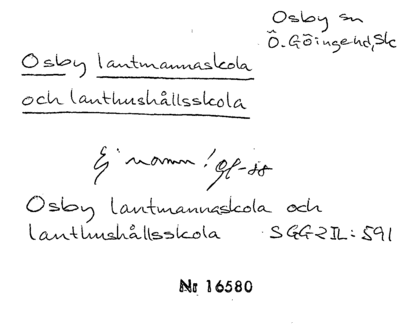 Osby sn
Ö. Göingehd, Sk
Osby lantmannaskola
och lanthushållsskola
Ej namn!
Osby lantmannaskola och
lanthushållsskola SGG2IL: 591
Nr 16580